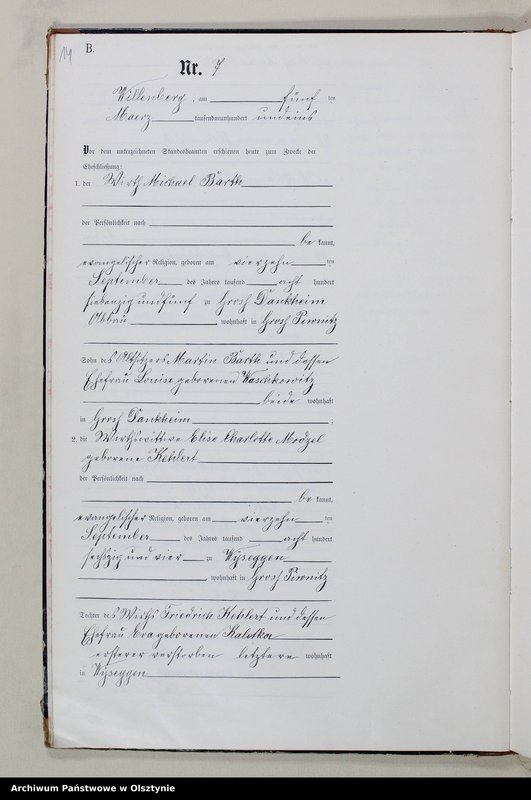 14
B.
Nr. 7
Willenberg, am fünf ten
Maerz tausendneunhundert undeins
Vor dem unterzeichneten Standesbeamten erschienen heute zum Zwecke der
Eheschließung:
1. der Wirth Michael Bartk
der Persönlichkeit nach
be kannt,
evangelischer Religion, geboren am vierzehn ten
September des Jahres tausend acht hundert
siebenzig und fünf zu Groß Dankheim
Abbau wohnhaft in Groß Piwnitz
Sohn des Altsitzers Martin Bartk und dessen
Ehefrau Louise geborenen Waschkowitz
beide wohnhaft
in Groß Dankheim ;
2. die Wirthswittwe Elise Charlotte Modzel
geborene Kehlert
der Persönlichkeit nach
be kannt,
evangelischer Religion, geboren am vierzehn ten
September des Jahres tausend acht hundert
sechszig und vier zu Wyseggen
, wohnhaft in Groß Piwnitz
Tochter des Wirths Friedrich Kehlert und dessen
Ehefrau Eva geborenen Kaletka
ersterer verstorben letztere wohnhaft
in Wyseggen
Archiwum Państwowe w Olsztynie